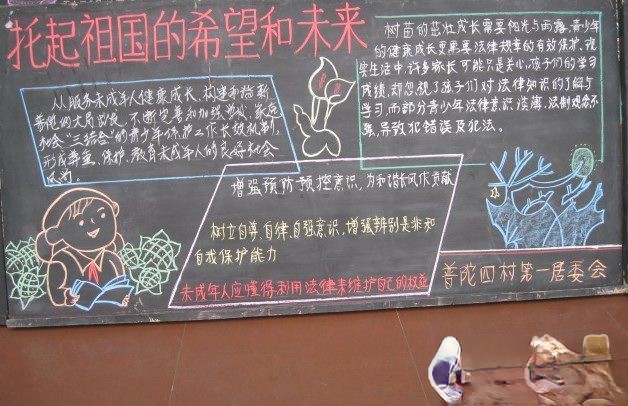 托起祖国的希望和未来
从服务未成年人健康成长、构建和谐新
普陀的大局出发、不断完善和加强学校、家庭
社会“三结合”的青少年保护工作长效机制,
形成尊重、保护、教育未成年人的良好社会
风气。
树苗的茁壮成长需要阳光与雨露,青少年
的健康成长更需要法律规章的有效保护。现
实生活中,许多家长可能只是关心孩子们的学习
成绩,却忽视了孩子们对法律知识的了解与
学习,而部分青少年法律意识淡薄,法制观念不
强,导致犯错误及犯法。
增强预防预控意识,为和谐长风作贡献
树立自尊、自律、自强意识,增强辨别是非和
自我保护能力
未成年人应懂得利用法律来维护自己的权益
普陀四村第一居委会